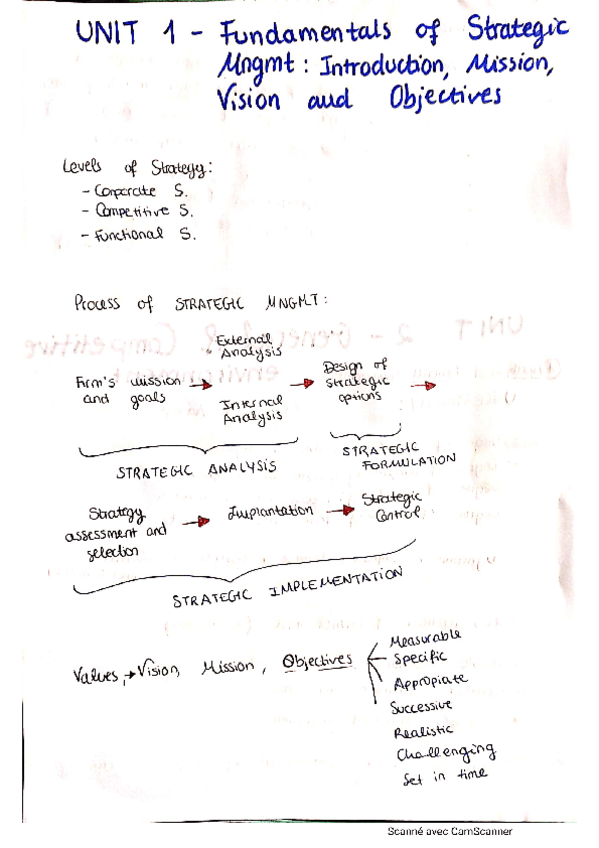 UNIT 1 - Fundamentals of Strategic
Mngmt: Introduction, Mission,
Vision and Objectives
Levels of Strategy:
- Corporate S.
- Competitive S.
- Functional S.
Process of STRATEGIC MNGMT:
Firm's mission
and goals
External
Analysis
Internal
Analysis
Design of
strategic
options
STRATEGIC ANALYSIS
STRATEGIC
FORMULATION
Strategy
assessment and
selection
Implantation
Strategic
Control
STRATEGIC IMPLEMENTATION
Values, → Vision, Mission, Objectives
Measurable
Specific
Appropiate
Successive
Realistic
Challenging
Set in time
Scanné avec CamScanner